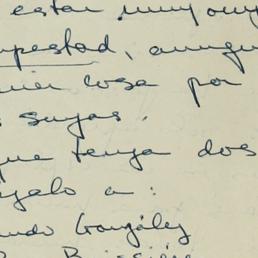 estar muy
mpestad, aunqu
cosa por
suyas.
que tenga dos
galo a:
ndo González